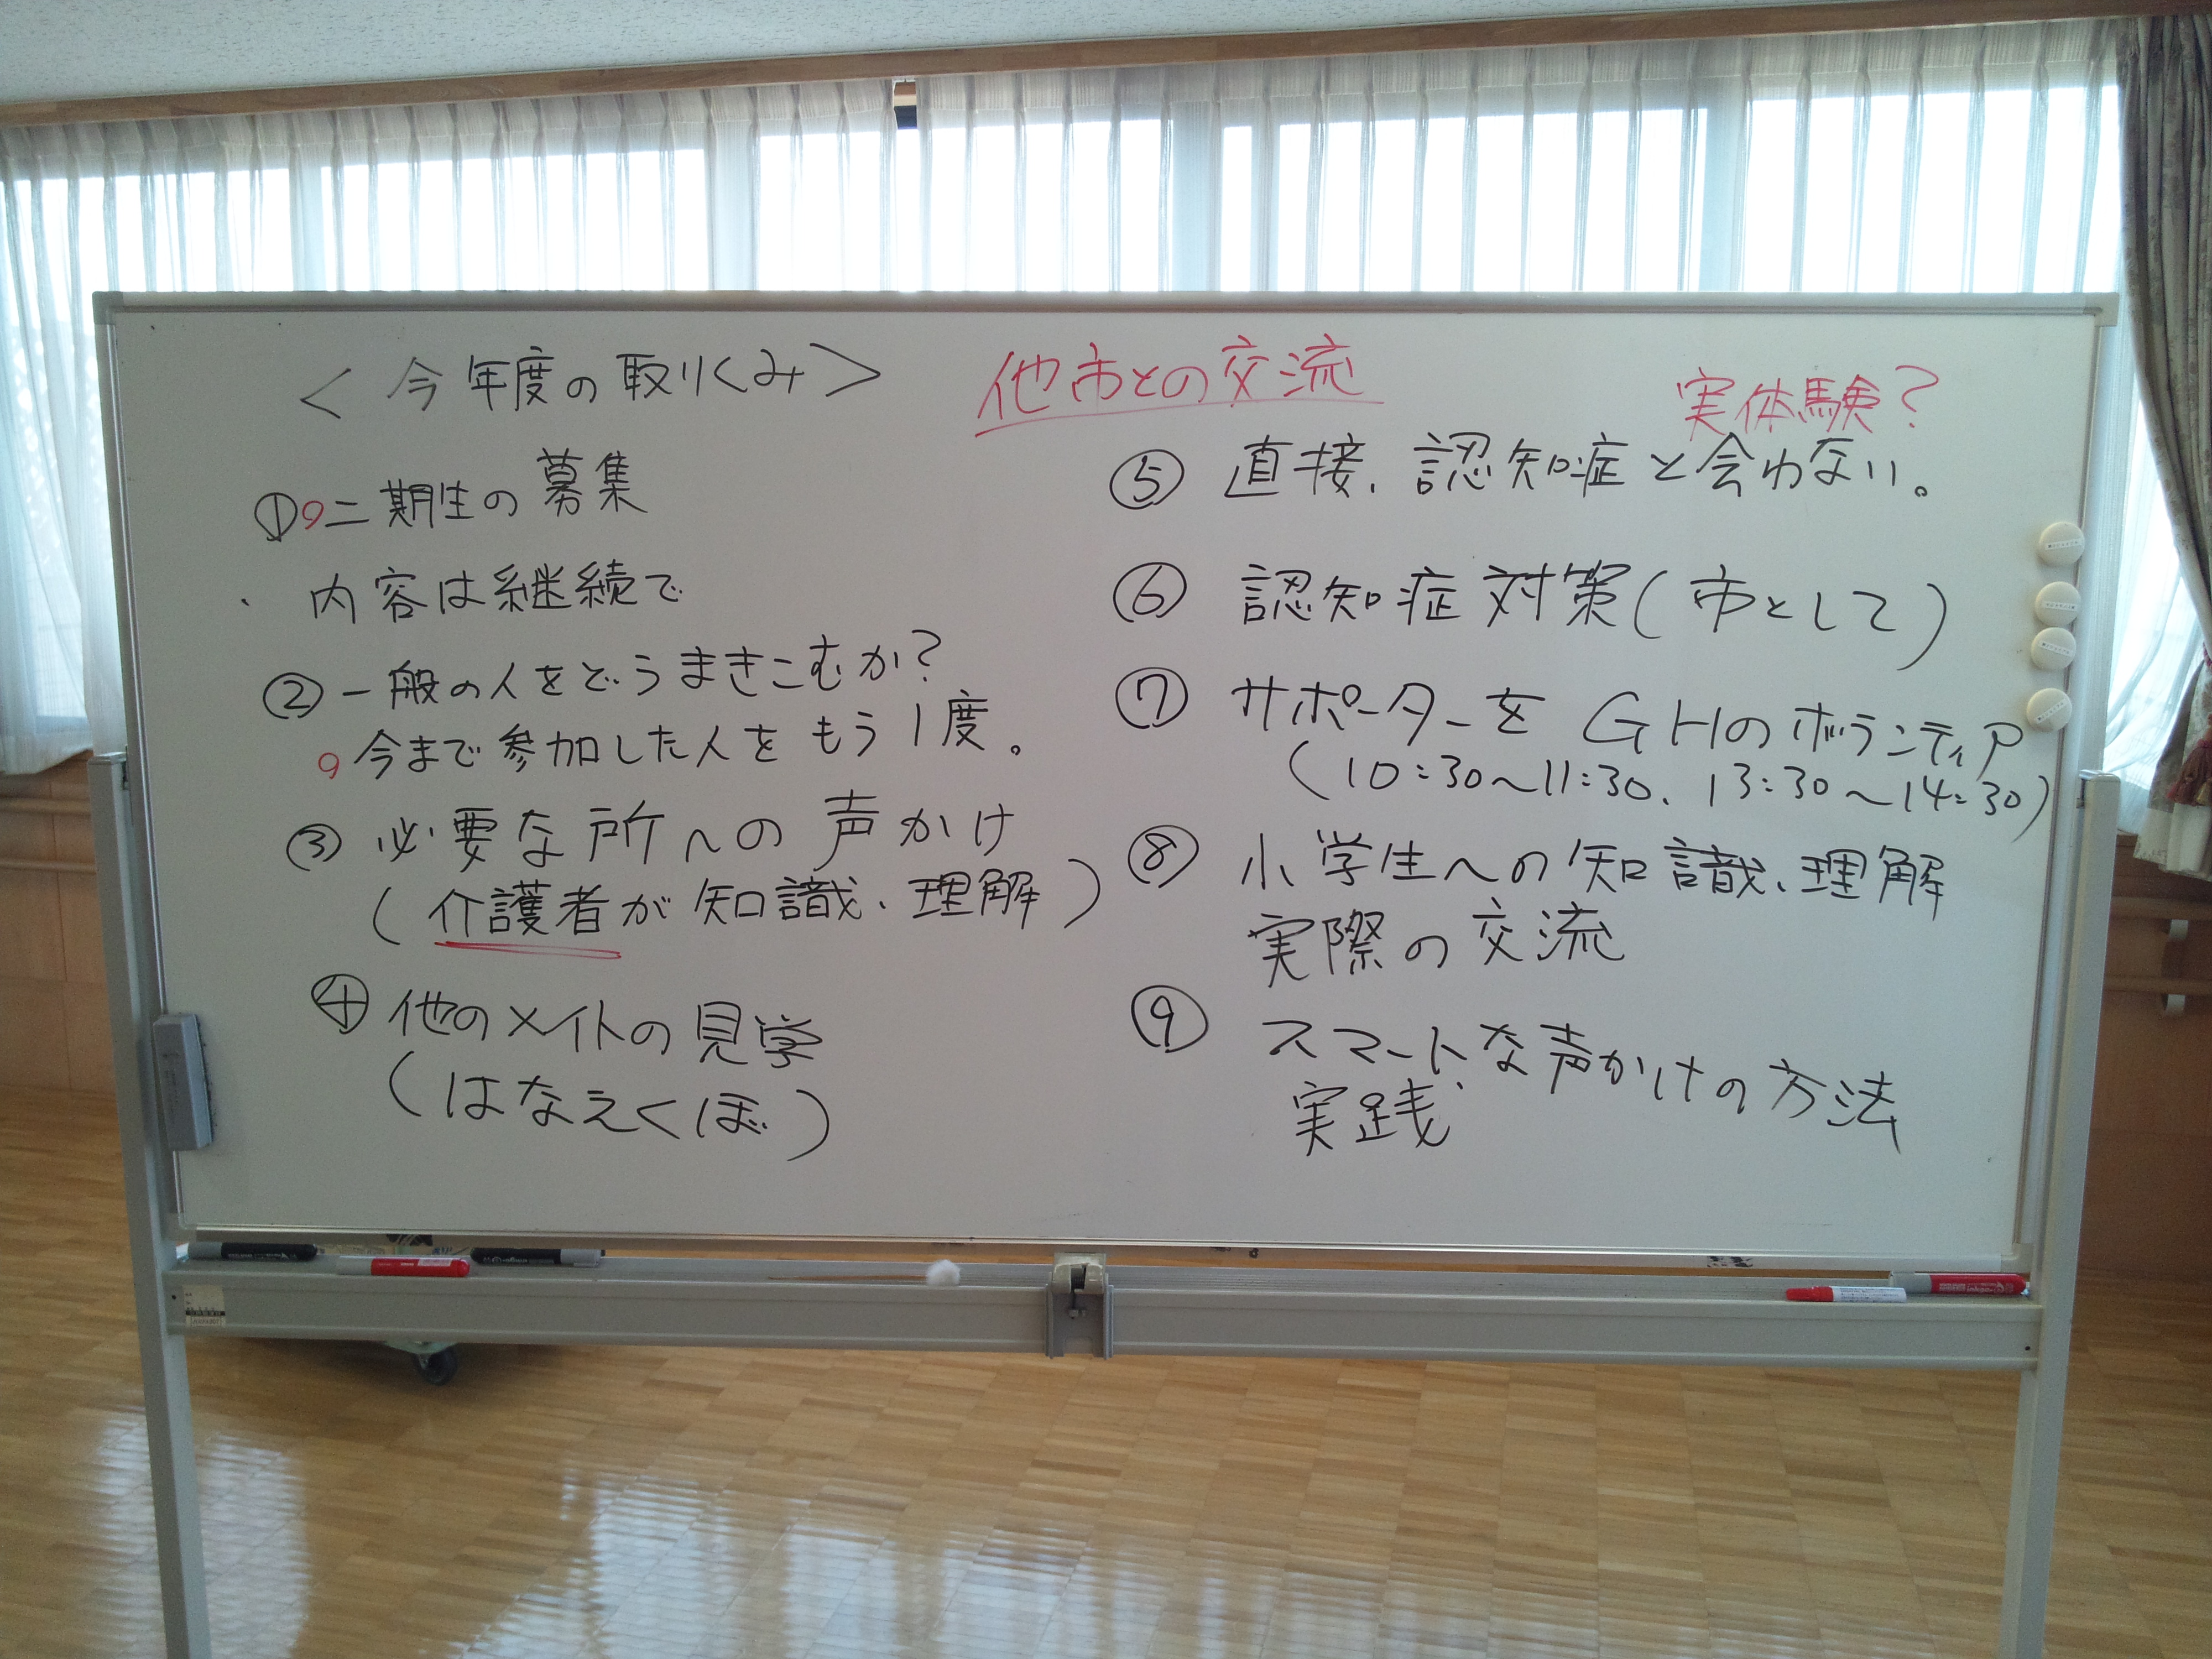 ＜今年度の取りくみ＞
他市との交流
実体験？
①9二期生の募集
・内容は継続で
②一般の人をどうまきこむか？
9今まで参加した人をもう1度。
③必要な所への声かけ
（介護者が知識、理解）
④他のメイトの見学
（はなえくぼ）
⑤直接、認知症と会わない。
⑥認知症対策（市として）
⑦サポーターをGHのボランティア
（10:30～11:30、13:30～14:30）
⑧小学生への知識、理解
実際の交流
⑨スマートな声かけの方法
実践